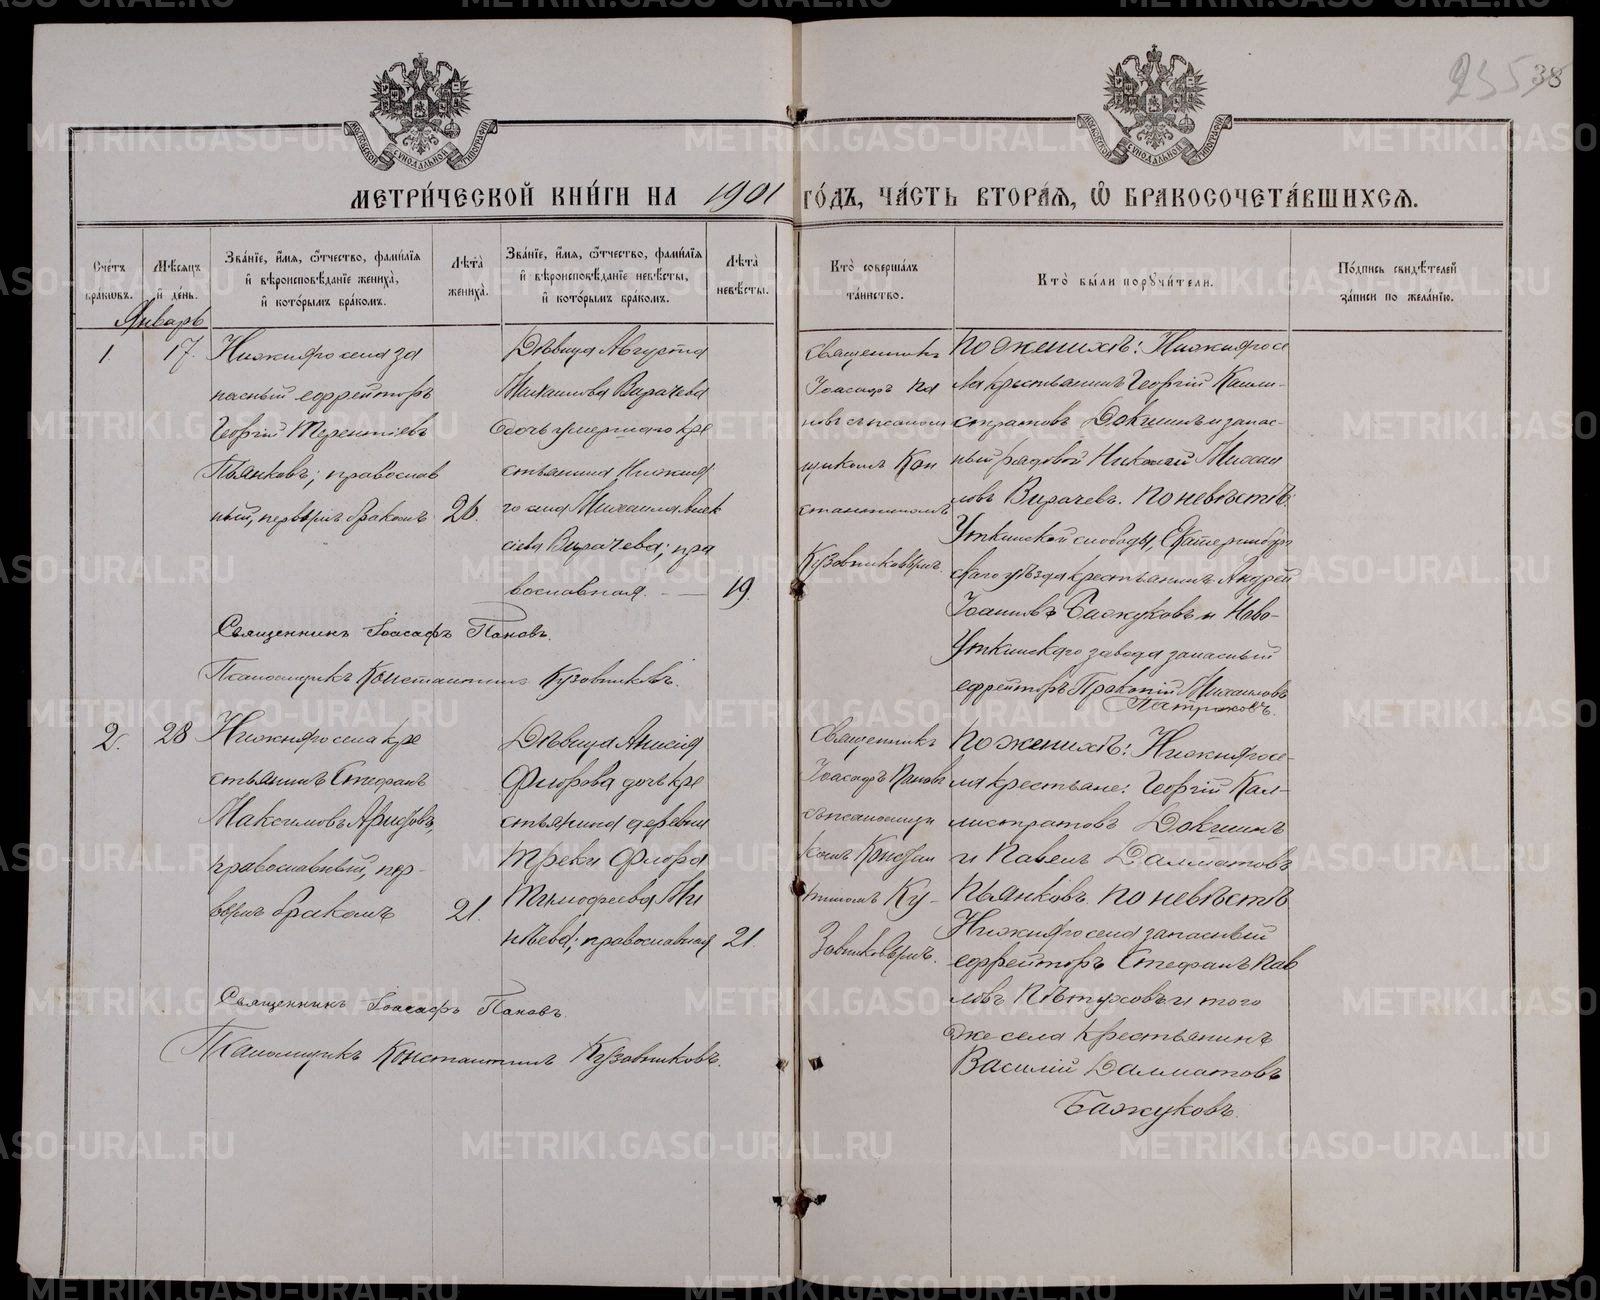 235 38
МОСКОВСКОЙ СѴНОДАЛЬНОЙ ТИПОГРАФІИ
МОСКОВСКОЙ СѴНОДАЛЬНОЙ ТИПОГРАФІИ
МЕТРИ́ЧЕСКОЙ КНИ́ГИ НА 1901 ГО́ДЪ, ЧА́СТЬ ВТОРА́Я, Ѽ БРАКОСОЧЕТА́ВШИХСЯ.
Сче́тъ бра́ковъ.
Мѣ́сяцъ и де́нь.
Зва́ніе, и́мя, ѻ҆́тчество, фами́лія и вѣроисповѣ́даніе жениха̀, и кото́рымъ бра́комъ.
Лѣта̀ жениха̀.
Зва́ніе, и́мя, ѻ҆́тчество, фами́лія и вѣроисповѣ́даніе невѣ́сты, и кото́рымъ бра́комъ.
Лѣта̀ невѣ́сты.
Кто̀ соверша́лъ та́инство.
Кто̀ бы́ли поручи́тели.
По́дпись свидѣ́телей за́писи по жела́нію.
Январь
1.
17.
Нижняго села за
пасный ефрейторъ
Георгій Терентіевъ
Пьянковъ; православ
ный, первымъ бракомъ
26.
Дѣвица Августа
Михаилова Вирачева
дочь умершаго кре
стьянина Нижня
го села Михаила Алек
сіева Вирачева; пра
вославная.
19.
Священникъ
Іоасафъ Па
новъ съ псалом
щикомъ Кон
стантиномъ
Кузовниковымъ.
По женихѣ: Нижняго се
ла крестьянинъ Георгій Калли-
стратовъ Докшинъ и запас-
ный рядовой Николай Михаи
ловъ Вирачевъ. По невѣстѣ:
Уткинской слободы, Екатеринбург
скаго уѣзда крестьянинъ Андрей
Іоанновъ Бажуковъ и Ново-
Уткинскаго завода запасный
ефрейторъ Прокопій Михаиловъ
Патраковъ.
Священникъ Іоасафъ Пановъ.
Псаломщикъ Константинъ Кузовниковъ.
2.
28
Нижняго села кре
стьянинъ Стефанъ
Максимовъ Арифовъ,
православный, пер-
вымъ бракомъ
21.
Дѣвица Анисія
Флорова дочь кре
стьянина деревни
Треки Флора
Тимофеева Ми
нѣева; православная
21.
Священникъ
Іоасафъ Пановъ
съ псаломщи
комъ Констан
тиномъ Ку-
зовниковымъ.
По женихѣ: Нижняго се-
ла крестьяне: Георгій Кал-
листратовъ Докшинъ
и Павелъ Далматовъ
Пьянковъ. По невѣстѣ
Нижняго села запасный
ефрейторъ Стефанъ Пав
ловъ Пѣтуховъ и того
же села крестьянинъ
Василій Далматовъ
Бажуковъ.
Священникъ Іоасафъ Пановъ.
Псаломщикъ Константинъ Кузовниковъ.
METRIKI.GASO-URAL.RU